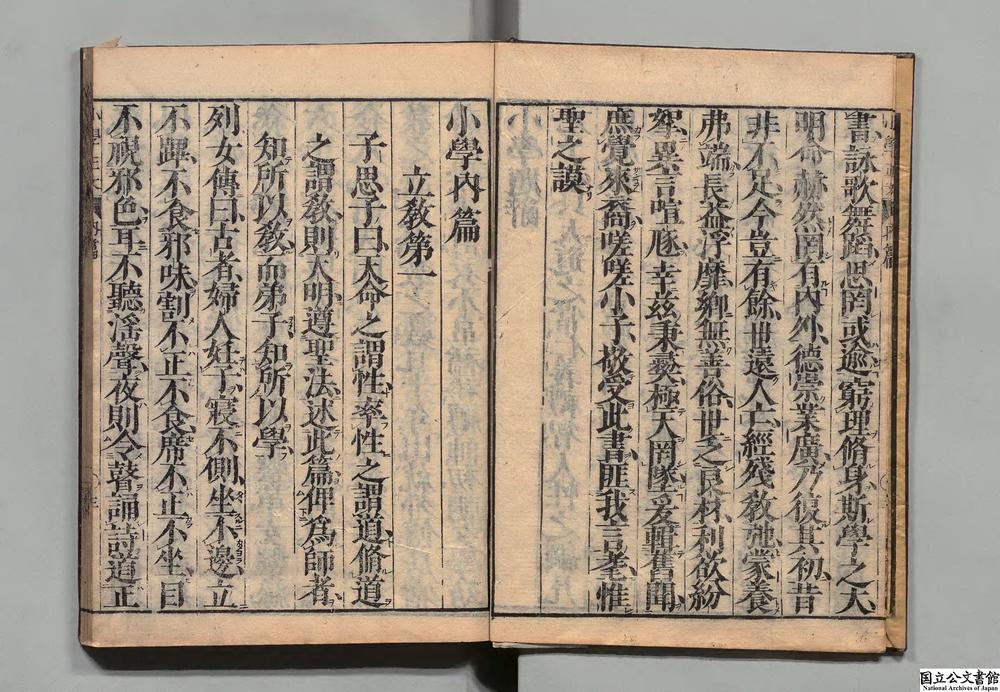 書詠歌舞蹈思罔或逾窮理脩身斯學之大
明命赫然罔有內外德崇業廣乃復其初昔
非不足今豈有餘世遠人亡經殘敎弛蒙養
弗端長益浮靡鄉無善俗世乏良材利欲紛
挐異言喧豗幸玆秉彝極天罔墜爰輯舊聞
庶覺來裔嗟嗟小子敬受此書匪我言耄惟
聖之謨
小學內篇
立敎第一
子思子曰天命之謂性率性之謂道脩道
之謂敎則天明遵聖法述此篇俾為師者
知所以敎而弟子知所以學
列女傳曰古者婦人妊子寢不側坐不邊立
不蹕不食邪味割不正不食席不正不坐目
不視邪色耳不聽淫聲夜則令瞽誦詩道正
国立公文書館
National Archives of Japan